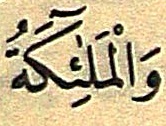 وَالْمَلٰٓئِكَةُ